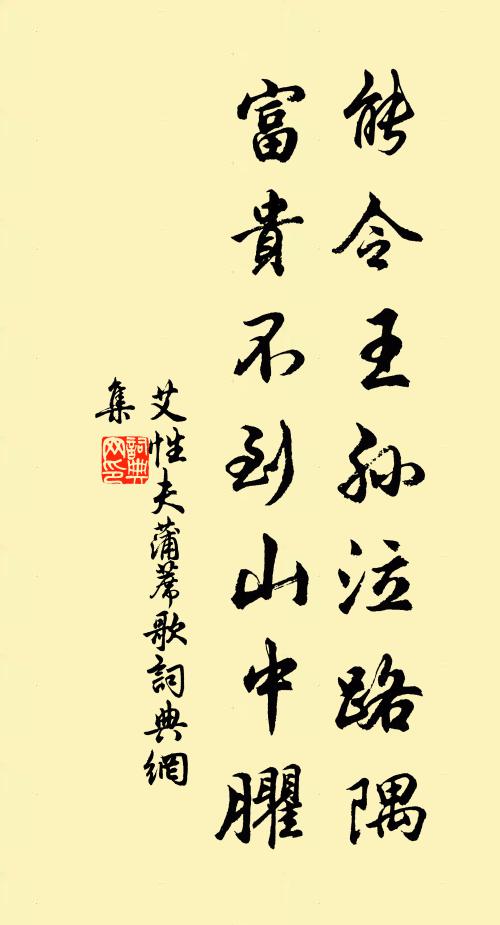 能令王孫泣路隅
富貴不到山中臞
艾性夫蒲蓆歌詞典網
集
詞典網印